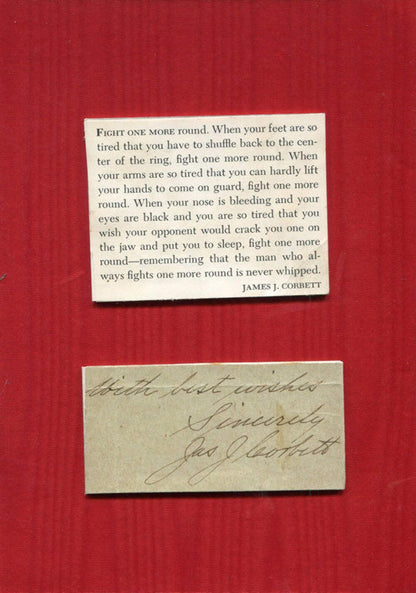 FIGHT ONE MORE round. When your feet are so
tired that you have to shuffle back to the cen-
ter of the ring, fight one more round. When
your arms are so tired that you can hardly lift
your hands to come on guard, fight one more
round. When your nose is bleeding and your
eyes are black and you are so tired that you
wish your opponent would crack you one on
the jaw and put you to sleep, fight one more
round—remembering that the man who al-
ways fights one more round is never whipped.
JAMES J. CORBETT
With best wishes
Sincerely
Jas J Corbett